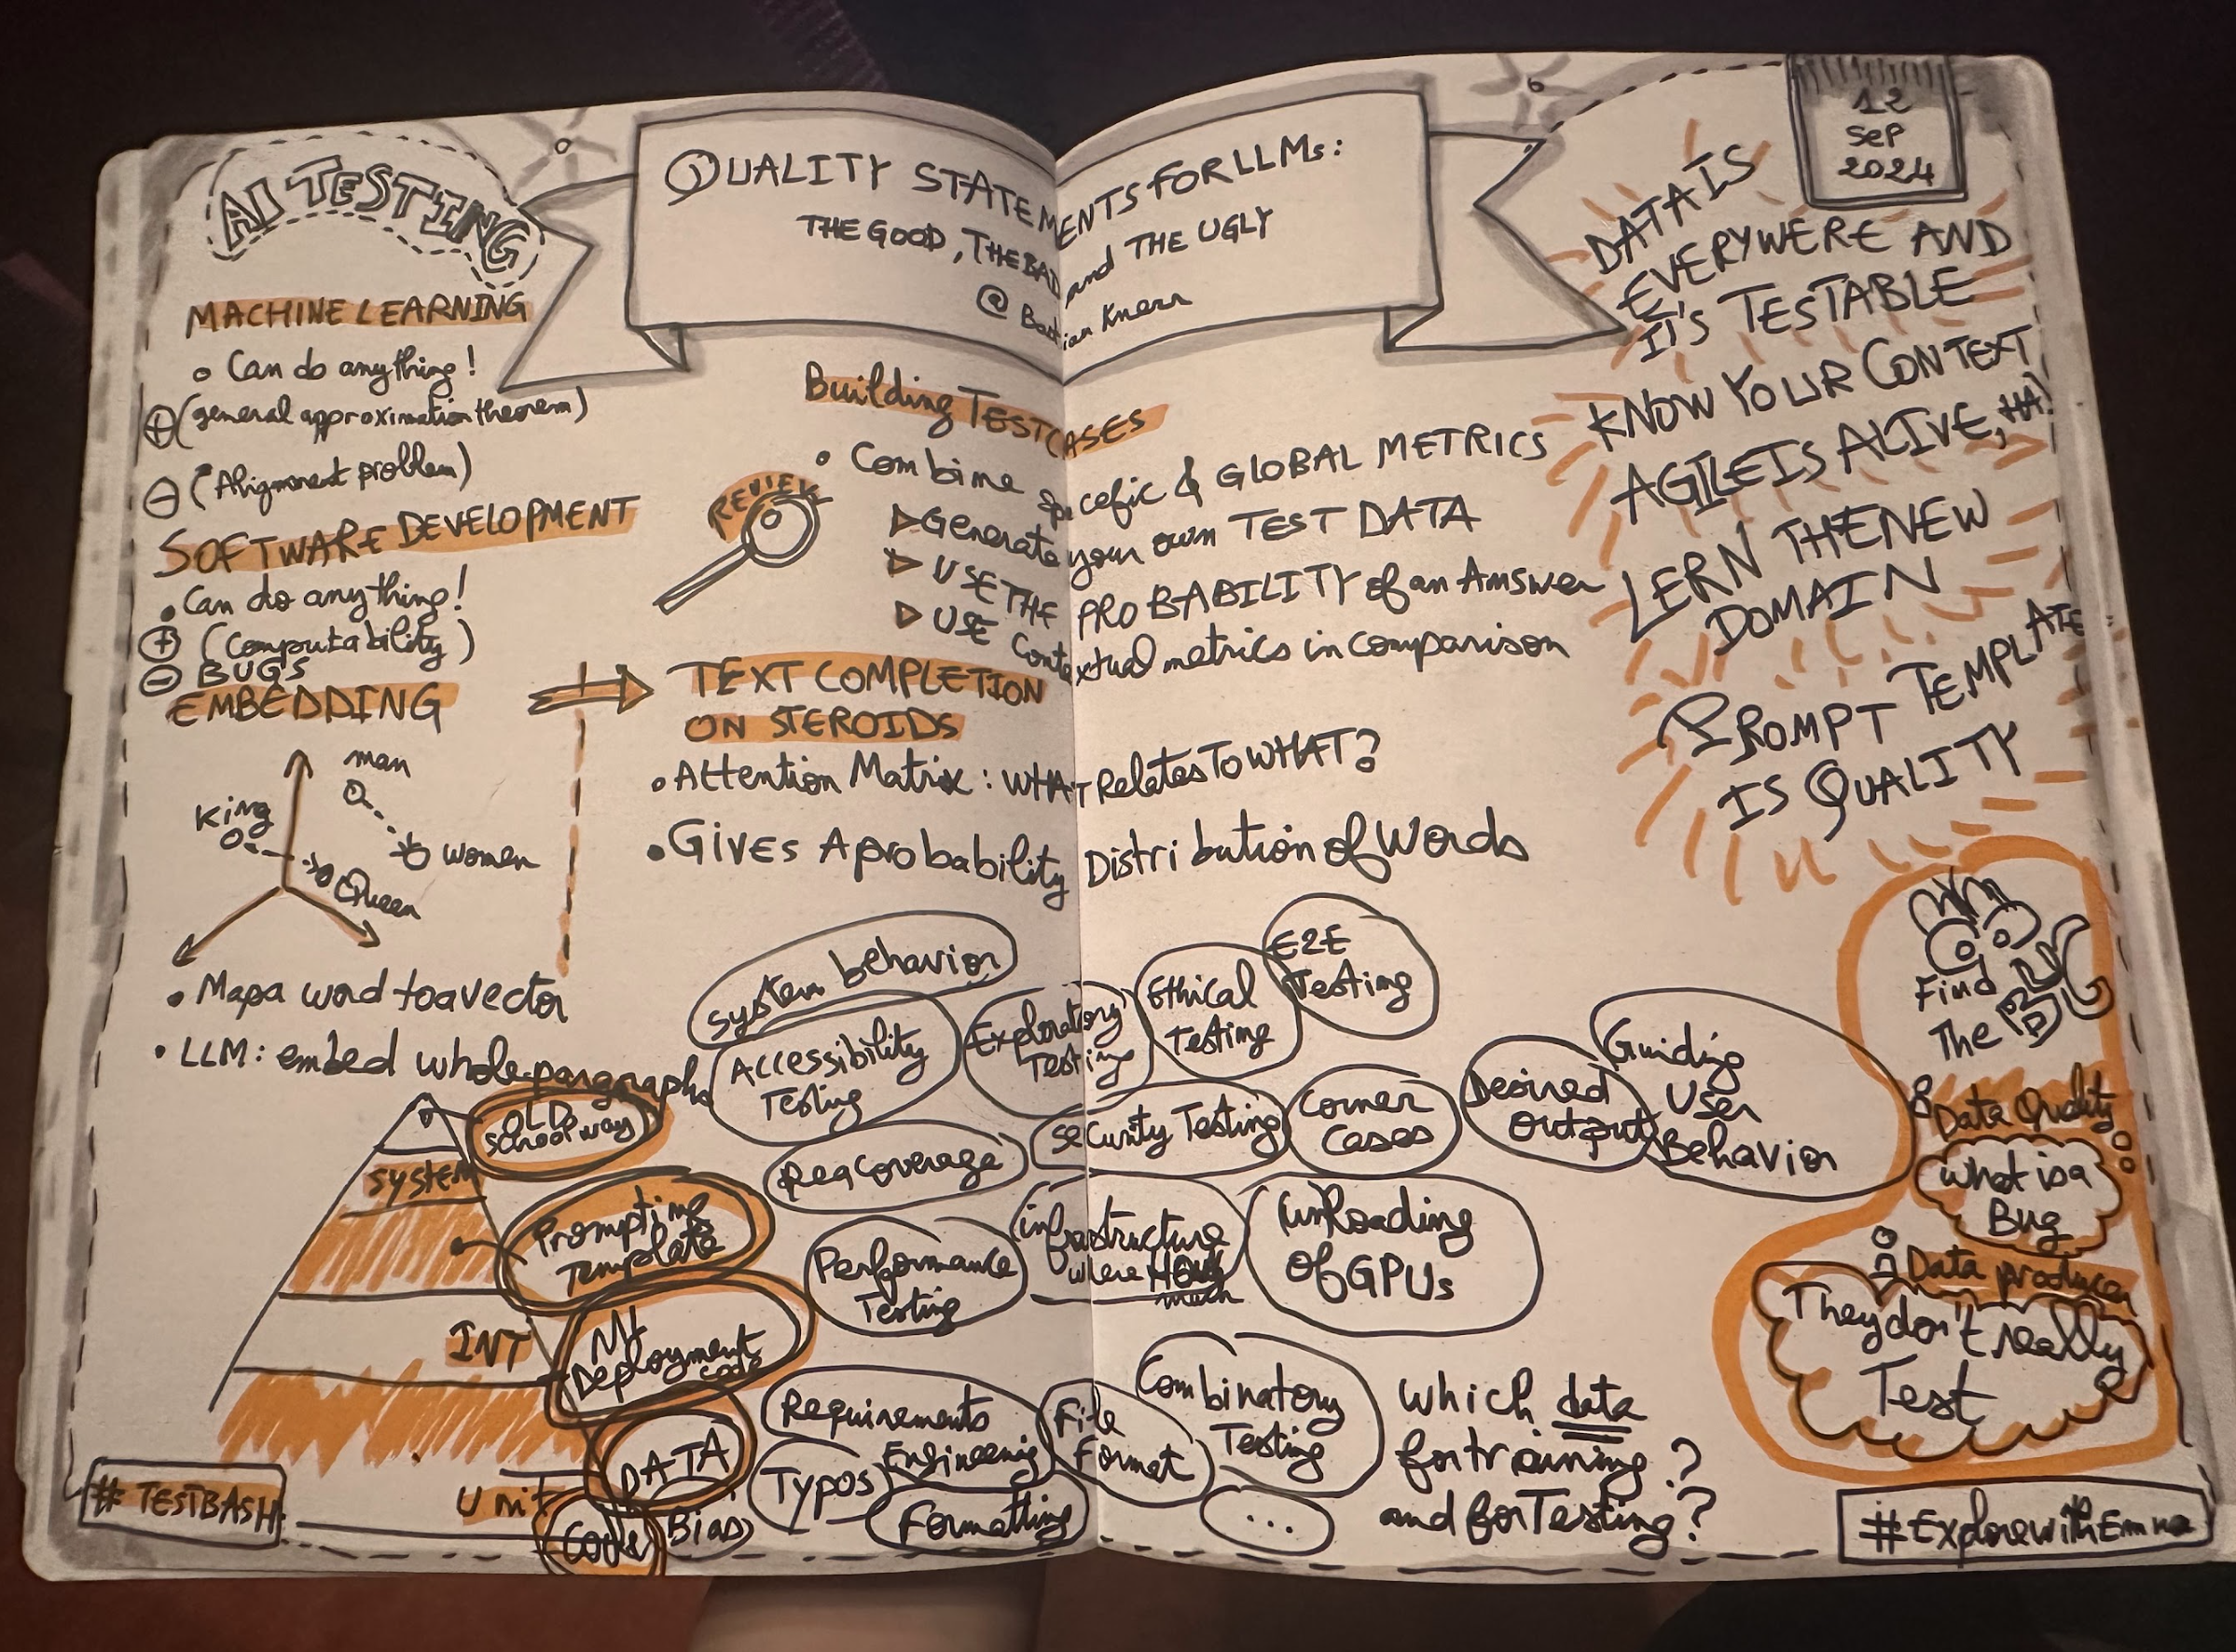 AI TESTING
QUALITY STATEMENTS FOR LLMs:
THE GOOD, THE BAD and THE UGLY
@ Bastian Knerr
12
Sep
2024
MACHINE LEARNING
Can do anything!
+ (general approximation theorem)
- (Alignment problem)
SOFTWARE DEVELOPMENT
Can do anything!
+ (Computability)
- BUGS
EMBEDDING
man
King
women
Queen
Map a word to a vector
LLM: embed whole paragraphs
Building TESTCASES
REVIEW
Combine specefic & GLOBAL METRICS
Generate your own TEST DATA
USE THE PROBABILITY of an Answer
USE Contextual metrics in comparison
TEXT COMPLETION
ON STEROIDS
Attention Matrix: WHAT Relates To WHAT?
Gives A probability Distribution of Words
DATA IS
EVERYWERE AND
IT'S TESTABLE
KNOW YOUR CONTEXT
AGILE IS ALIVE, HA!
LERN THE NEW
DOMAIN
PROMPT TEMPLATE
IS QUALITY
OLD
School way
system
Prompting
Template
INT
ML
Deployment
code
DATA
Unit
Code
Bias
system behavior
Accessibility
Testing
Exploratory
Testing
Ethical
Testing
E2E
Testing
Req Coverage
Security Testing
Corner
Cases
Desired
output
Guiding
User
Behavior
Performance
Testing
infrastructure
where HOW
much
(un)loading
of GPUs
Requirements
Engineering
Typos
Formatting
File
Format
Combinatory
Testing
...
Which data
for training?
and for Testing?
Find
The
Data Quality
What is a
Bug
Data producer
They don't really
Test
# TESTBASH
#ExplorewithEmna